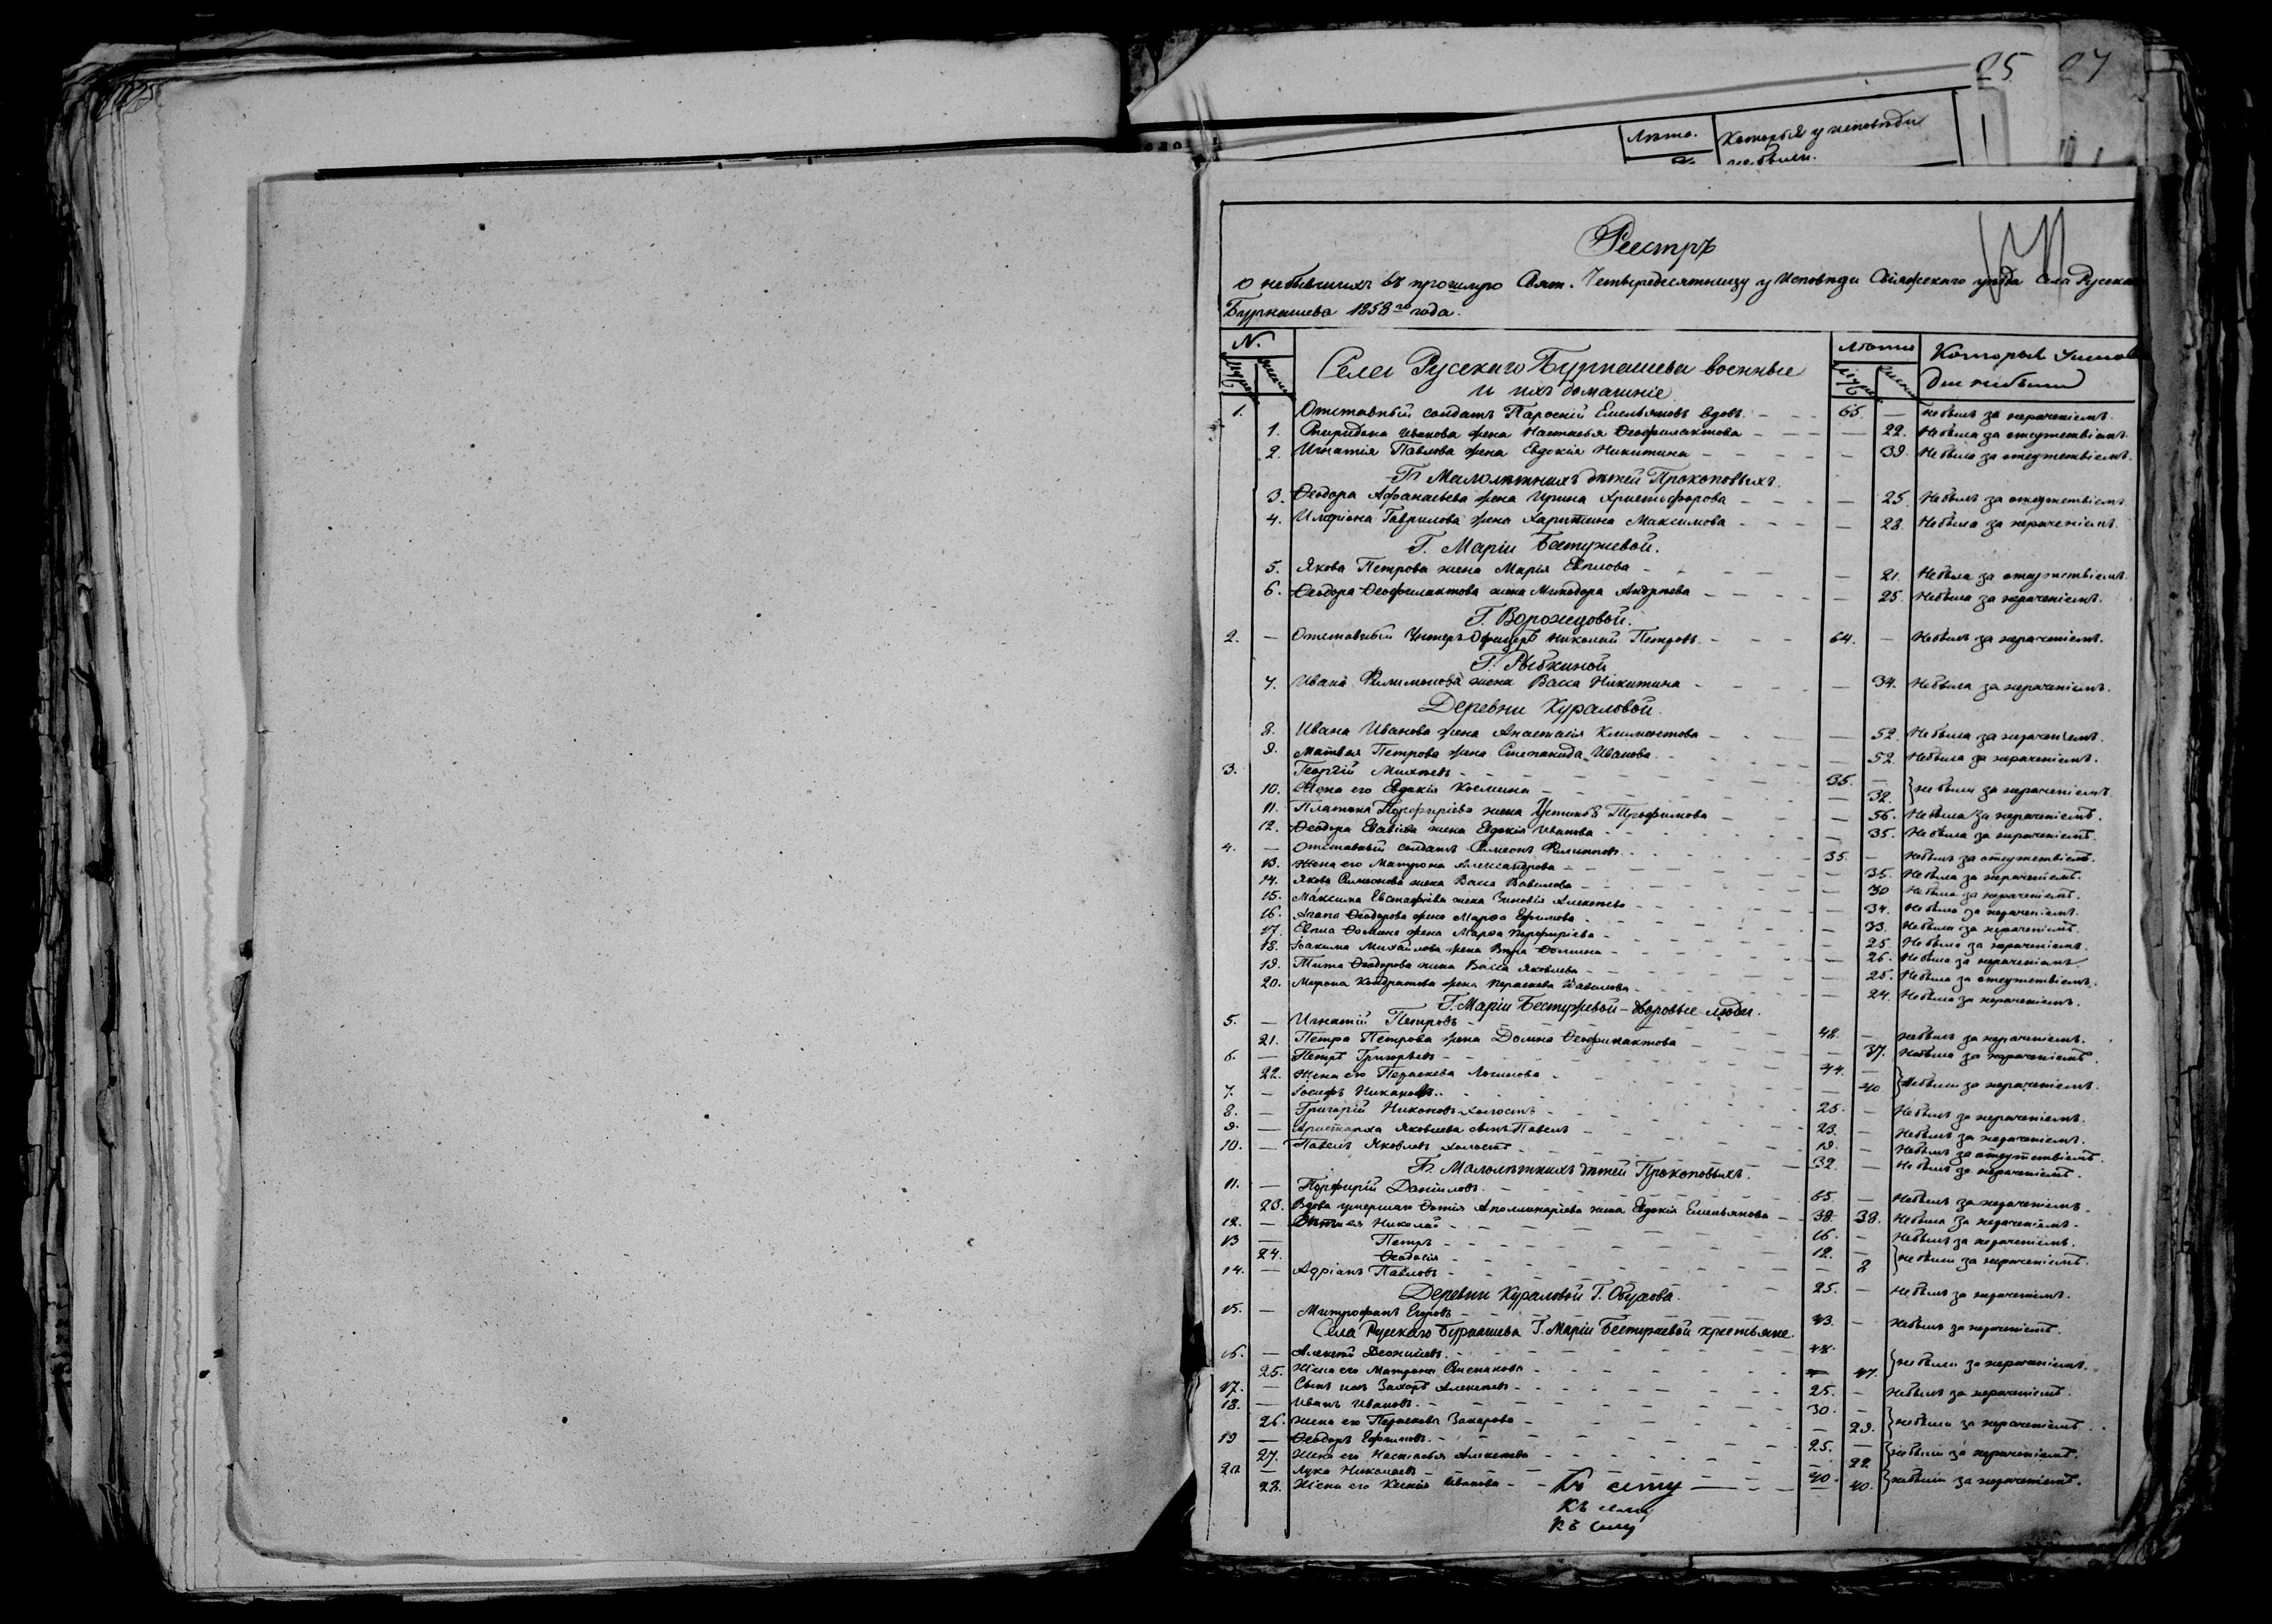 25 27
Лѣто. Которыя у исповѣди
не были.
Реестръ
о небывшихъ въ прошлую Свят. Четыредесятницу у Исповѣди Свіяжскаго уѣзда Села Русскаго
Бурнашева 1858го года.
N. Лѣта Которыя
Села Русскаго Бурнашева военные
и ихъ домашніе не были
1. Отставный солдатъ Емельяновъ вдовъ. 65. — не былъ за нераченіемъ.
1. Спиридона Иванова жена Настасья Ѳеофилактова — 22. Не была за отсутствіемъ.
2. Игнатія Павлова жена Евдокія Никитина — 39. Не была за отсутствіемъ.
Г. Малолѣтныхъ дѣтей Прокоповыхъ.
3. Ѳеодора Афанасьева жена Ирина Христофорова — 25. Не была за отсутствіемъ
4. Иларіона Гаврилова жена Харитина Максимова — 23. Не была за нераченіемъ.
Г. Маріи Бестужевой.
5. Якова Петрова жена Марія Евплова — 21. Не была за отсутствіемъ.
6. Ѳеодора Ѳеофилактова жена Минодора Андреева — 25. Не была за нераченіемъ.
Г. Ворожцовой.
2. — Отставный Унтеръ Офицеръ Николай Петровъ. 64. — Не былъ за нераченіемъ.
Г. Рыбкиной
7. Ивана Филимонова жена Васса Никитина — 34. Не была за нераченіемъ.
Деревни Кураловой.
8. Ивана Иванова жена Анастасія Климентова — 52. Не была за нераченіемъ.
9. Матвея Петрова жена Степанида Иванова — 52. Не была за нераченіемъ.
3. Георгій Михѣевъ 35. —
10. Жена его Евдокія Космина — 32. } не были за нераченіемъ.
11. Платона Порфиріева жена Устинья Трофимова — 56. Не была за нераченіемъ.
12. Ѳеодора жена Евдокія Иванова — 35. Не была за нераченіемъ.
4. — Отставный солдатъ Симеонъ Филипповъ 35. — Не былъ за отсутствіемъ.
13. Жена его Матрона Александрова — 35. Не была за нераченіемъ.
14. Якова Симеонова жена Васса Вавилова — 30 Не была за нераченіемъ.
15. Максима Евстафіева жена Зиновія Алексѣева — 34. Не была за нераченіемъ
16. Агапа Ѳеодорова жена Марѳа Ефимова — 33. Не была за нераченіемъ.
17. Евпла Ѳомина жена Марѳа Порфиріева — 25. Не была за нераченіемъ.
18. Іоакима Михайлова жена Вѣра Ѳомина — 26. Не была за нераченіемъ
19. Тита Ѳеодорова жена Васса Яковлева — 25. Не была за отсутствіемъ.
20. Мирона Кондратова жена Параскева Вавилова — 24. Не была за нераченіемъ.
Г. Маріи Бестужевой - дворовые люди.
5. — Игнатій Петровъ 48. — не былъ за нераченіемъ.
21. Петра Петрова жена Домна Ѳеофилактова — 37. Не была за нераченіемъ.
6. — Петръ Григорьевъ 44. —
22. Жена его Параскева Логинова — 40 } Не были за нераченіемъ.
7. — Іосифъ Никоновъ. 25. — Не былъ за нераченіемъ.
8. — Григорій Никоновъ холостъ 23. — Не былъ за нераченіемъ.
9. — Аристарха Яковлева сынъ Павелъ 19. — Не былъ за отсутствіемъ.
10. — Павелъ Яковлевъ холостъ 32. — Не былъ за нераченіемъ.
Г. Малолѣтныхъ дѣтей Прокоповыхъ.
11. — Порфирій Даниловъ. 65. — Не былъ за нераченіемъ.
23. Вдова умершаго Аполлинаріева жена Евдокія Емельянова 38. 38. Не была за нераченіемъ.
12. — Николай 16. — Не былъ за нераченіемъ.
13 — Петръ 12. —
24. Ѳеодосія — 2 } не были за нераченіемъ.
14. — Адріанъ Павловъ 25. — Не былъ за нераченіемъ.
Деревни Кураловой Г. Обухова.
15. — Митрофанъ Егоровъ 43. — Не былъ за нераченіемъ.
Села Русскаго Бурнашева Г. Маріи Бестужевой крестьяне.
16. — Алексѣй Деонисіевъ. 48.
25. Жена его Матрона Степанова 47. } не были за нераченіемъ.
17. — Сынъ ихъ Захаръ Алексѣевъ 25. — Не былъ за нераченіемъ.
18. — Иванъ Ивановъ. 30. —
26. Жена его Параскева Захарова — 29. } не были за нераченіемъ.
19 — Ѳеодоръ Ефимовъ. 25. —
27. Жена его Настасья Алексѣева — 22 } не были за нераченіемъ.
20 — Лука Николаевъ 40. —
28. Жена его Ксенія Иванова — 40. } не были за нераченіемъ.
Къ сему
Къ сему
Къ сему